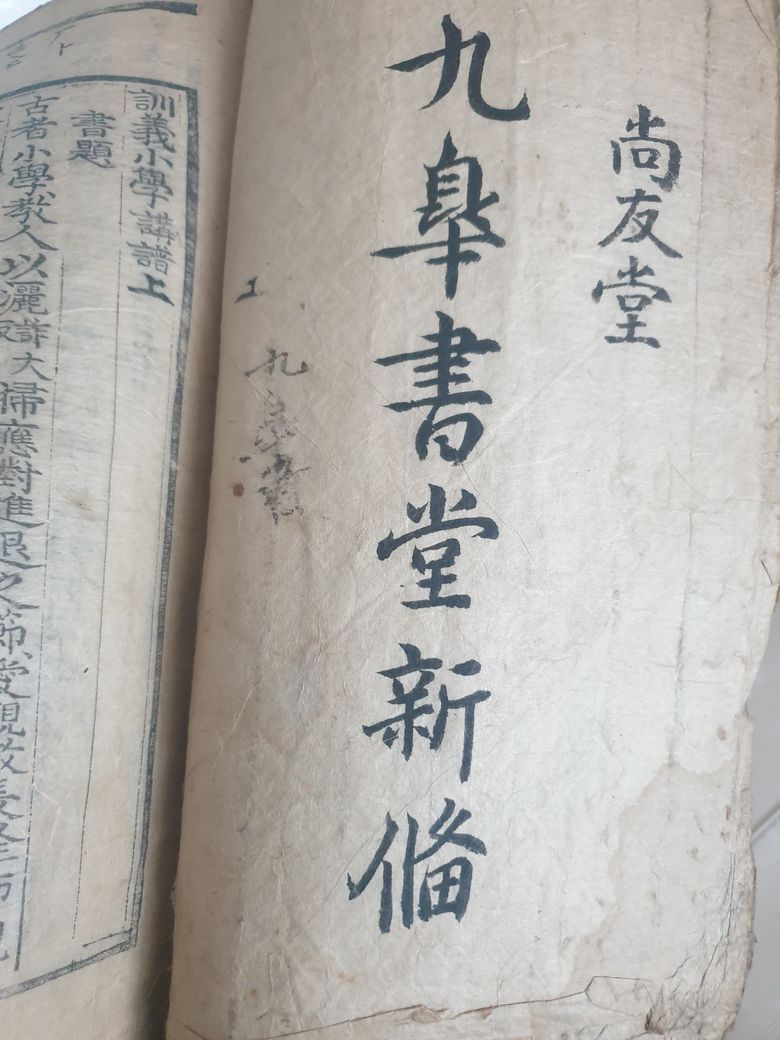 尚友堂
九皐書堂新偹
九
訓義小學講譜上
書題
古者小學教人以灑掃應對進退之節愛親敬長隆師親